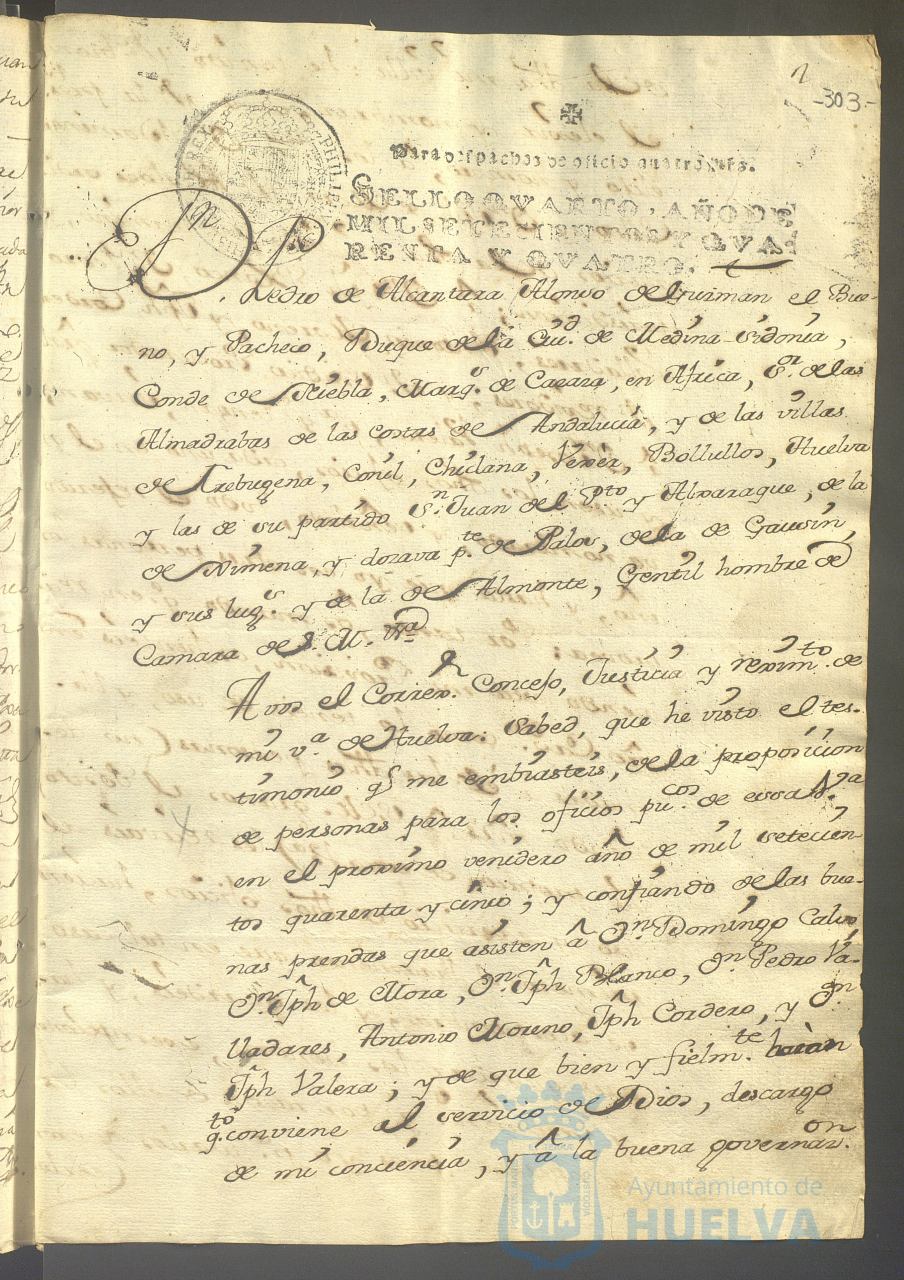 2
-303-
Para despachos de oficio quatro mrs.
SELLO QVARTO, AÑO DE
MIL SETECIENTOS Y QVA-
RENTA Y QVATRO.
PHILIP
REX
Dn Pedro de Alcantara Alonso de Guzman el Bue-
no, y Pacheco, Duque de la Ciud. de Medina Sidonia,
Conde de Niebla, Marqs. de Cazaza, en Africa, Sor. de las
Almadrabas de las costas de Andalucia, y de las villas
de Trebugena, Conil, Chiclana, Vexer, Bollullos, Huelva
y las de su partido Sn. Juan del Pto y Alxaraque, de la
de Ximena, y dozava pte de Palos, de la de Gaucin,
y sus lugs. y de la de Almonte, Gentil hombre de
Camara de S. M. &a
A vos el Correxr. Concejo, Justicia y reximto. de
mi va. de Huelva: Sabed, que he visto el tes-
timonio q̃ me embiasteis, de la proposicion
de personas para los oficios pucos. de essa Va.
en el proximo venidero año de mil setecien-
tos quarenta y cinco; y confiando de las bue-
nas prendas que asisten â Dn. Domingo Calvo
Dn. Jph de Mora, Dn. Jph Blanco, Dn. Pedro Va-
lladares, Antonio Moreno, Jph Cordero, y Dn
Jph Valera; y de que bien y fielmte. haràn
qto. conviene al servicio de Dios, descargo
de mi conciencia, y â la buena governazon.
Ayuntamiento de
HUELVA